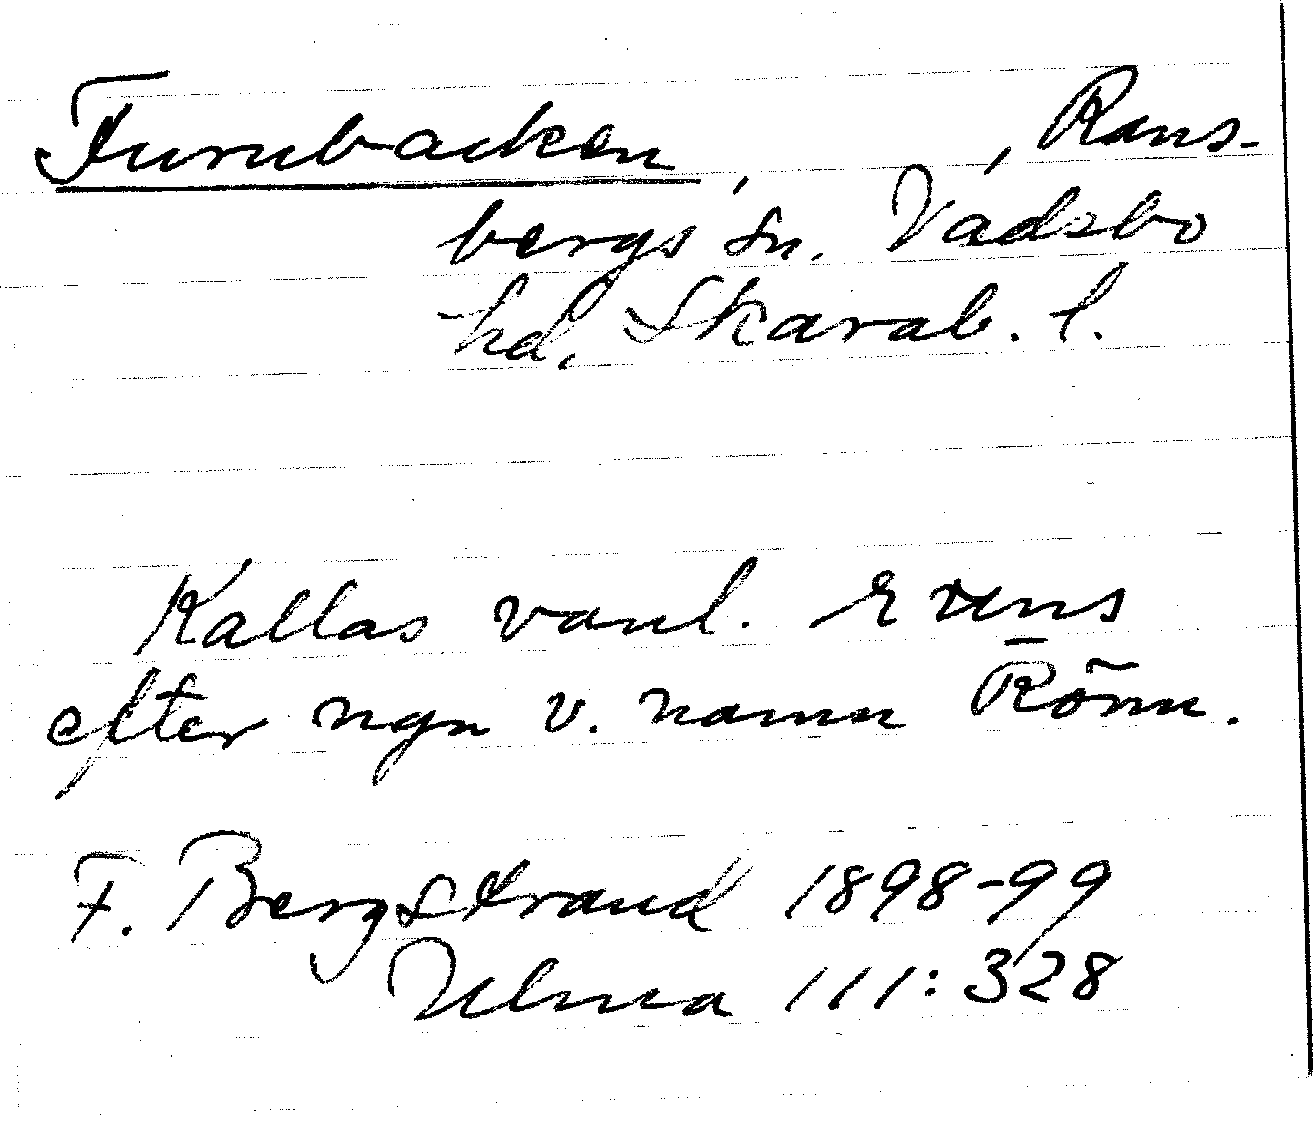 Furubacken, , Rans-
bergs sn. Vadsbo
hd. Skarab. l.
Kallas vanl.
efter ngn v. namn Rönn.
F. Bergstrand 1898-99
Ulma 111:328